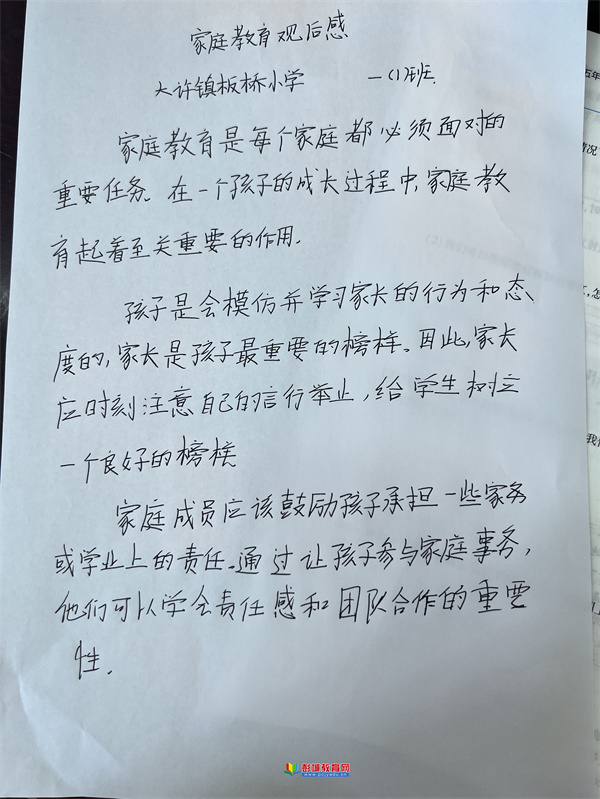 家庭教育观后感
大许镇板桥小学 一(1)班
家庭教育是每个家庭都必须面对的
重要任务。在一个孩子的成长过程中,家庭教
育起着至关重要的作用.
孩子是会模仿并学习家长的行为和态
度的,家长是孩子最重要的榜样。因此,家长
应时刻注意自己的言行举止,给学生树立
一个良好的榜样
家庭成员应该鼓励孩子承担一些家务
或学业上的责任.通过让孩子参与家庭事务,
他们可以学会责任感和团队合作的重要
性.
彭城教育网